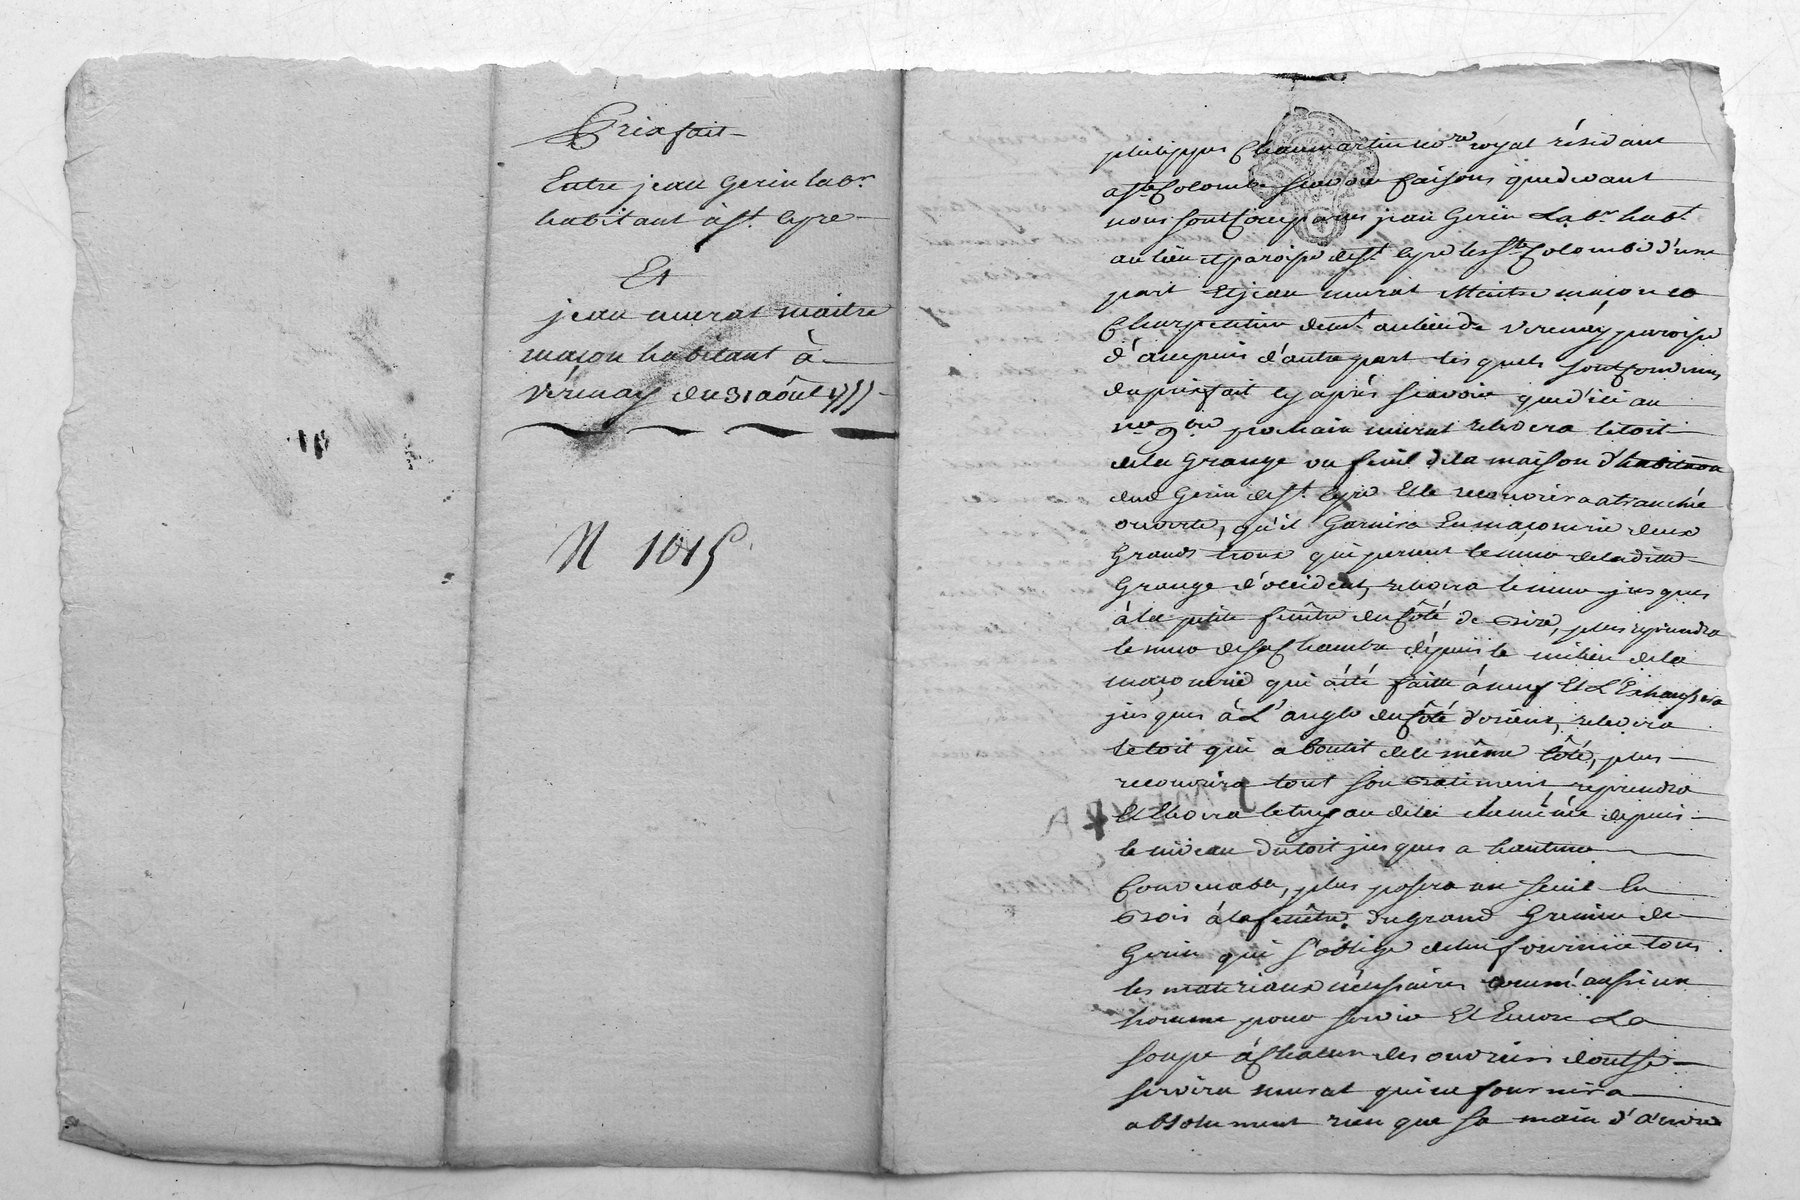 Prixfait
Entre jean Gerin lab.r
habitant à st. Cyre
Et
jean murat maitre
maçon habitant à
Vérenay du 31 aôut 1755
N 1015
philippes Chaumartin no.re royal résidant
a ste Colombe sçavoir faisons que devant
nous sont comparus jean Gerin Lab.r hab.t
au lieu et paroisse de st Cyre les ste Colombe d'une
part Et jean murat Maitre maçon et
Charpentier dem.t au lieu de Verenay paroisse
d'ampuis d'autre part les quels sont convenus
du prixfait cy aprés sçavoir que d'ici au
prochain murat relevera le toit
de la Grange ou fenil de la maison d'habitaon
dud Gerin de st. Cyre Et le recouvrira a tranchée
ouverte, qu'il Garnira En maçonnerie deux
Grands troux qui percent le mur de la ditte
Grange d'occident, relevera le mur jusques
à la petite fenêtre du côté de bize, plus reprendra
le mur de sa Chambre dépuis le milieu de la
maçonnerie qui a été faitte à neuf Et L'Exhaussera
jusques à L'angle du côté d'orient, relevera
le toit qui aboutit de le même côté, plus
recouvrira tout son batiment reprendra
Et Elevera le tuyau de la cheminée depuis
le niveau du toit jusques a hauteur
Convenable, plus posera un seuil En
bois à la fenêtre du grand Grenier de
Gerin qui s'oblige de lui fournir tous
les materiaux nécessaires comm'aussi un
homme pour servir Et Encore La
soupe à Chacun des ouvriers dont se
servira murat qui ne fournira
absolument rien que sa main d'œuvre